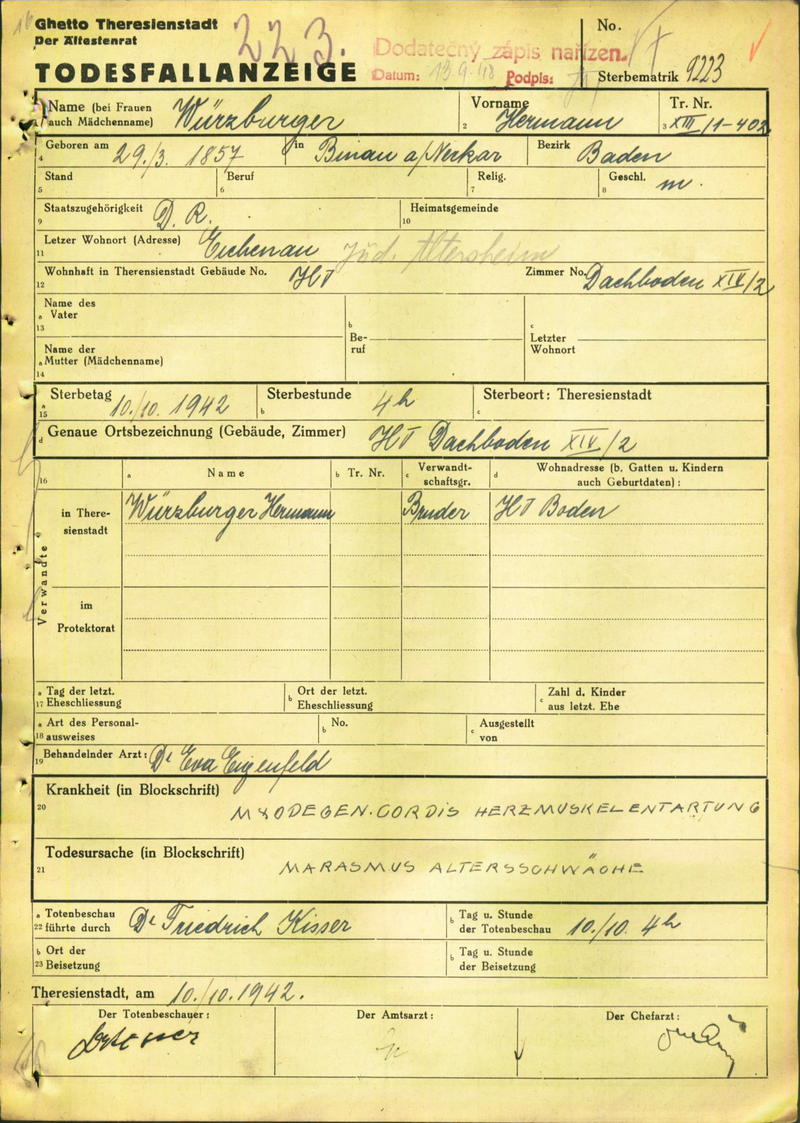 Ghetto Theresienstadt
Der Ältestenrat
TODESFALLANZEIGE
223.
Dodatečný zápis nařízen.
Datum: 13.9.48 Podpis:
No.
Sterbematrik 9223
Name (bei Frauen auch Mädchenname) Würzburger
Vorname 2 Hermann
Tr. Nr. 3 XIII/1-402
4 Geboren am 29./3. 1857 in Binau a/Neckar Bezirk Baden
Stand 5 Beruf 6 Relig. 7 Geschl. 8 m.
Staatszugehörigkeit 9 D. R. Heimatsgemeinde 10
Letzer Wohnort (Adresse) 11 Eichenau Jüd. Altersheim
Wohnhaft in Therensienstadt Gebäude No. 12 HV Zimmer No. Dachboden XIV/2
Name des Vater a 13
b Beruf
c Letzter Wohnort
Name der Mutter (Mädchenname) a 14
Sterbetag a 15 10./10. 1942 Sterbestunde b 4h Sterbeort: Theresienstadt c
d Genaue Ortsbezeichnung (Gebäude, Zimmer) HV Dachboden XIV/2
16 a Name b Tr. Nr. c Verwandtschaftsgr. d Wohnadresse (b. Gatten u. Kindern auch Geburtdaten) :
Verwandte
in Theresienstadt Würzburger Hermann Bruder HV Boden
im Protektorat
a 17 Tag der letzt. Eheschliessung b Ort der letzt. Eheschliessung c Zahl d. Kinder aus letzt. Ehe
a 18 Art des Personalausweises b No. c Ausgestellt von
19 Behandelnder Arzt: Dr Eva Eigenfeld
Krankheit (in Blockschrift)
20 MYODEGEN. CORDIS HERZMUSKELENTARTUNG
Todesursache (in Blockschrift)
21 MARASMUS ALTERSSCHWÄCHE
a 22 Totenbeschau führte durch Dr Friedrich Kisser b Tag u. Stunde der Totenbeschau 10./10. 4h
b 23 Ort der Beisetzung b Tag u. Stunde der Beisetzung
Theresienstadt, am 10./10. 1942.
Der Totenbeschauer: Der Amtsarzt: Der Chefarzt: